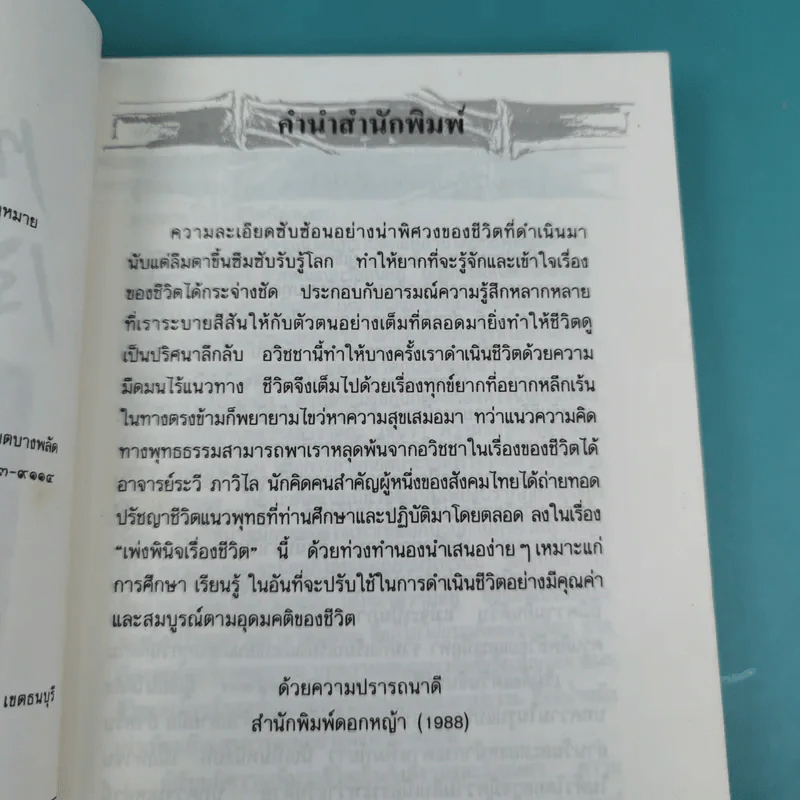 หมาย
บางพลัด
๓-๙๑๑๔
เขตธนบุรี
คำนำสำนักพิมพ์
ความละเอียดซับซ้อนอย่างน่าพิศวงของชีวิตที่ดำเนินมา
นับแต่ลืมตาขึ้นซึมซับรับรู้โลก ทำให้ยากที่จะรู้จักและเข้าใจเรื่อง
ของชีวิตได้กระจ่างชัด ประกอบกับอารมณ์ความรู้สึกหลากหลาย
ที่เราระบายสีสันให้กับตัวตนอย่างเต็มที่ตลอดมายิ่งทำให้ชีวิตดู
เป็นปริศนาลึกลับ อวิชชานี้ทำให้บางครั้งเราดำเนินชีวิตด้วยความ
มืดมนไร้แนวทาง ชีวิตจึงเต็มไปด้วยเรื่องทุกข์ยากที่อยากหลีกเร้น
ในทางตรงข้ามก็พยายามไขว่หาความสุขเสมอมา ทว่าแนวความคิด
ทางพุทธธรรมสามารถพาเราหลุดพ้นจากอวิชชาในเรื่องของชีวิตได้
อาจารย์ระวี ภาวิไล นักคิดคนสำคัญผู้หนึ่งของสังคมไทยได้ถ่ายทอด
ปรัชญาชีวิตแนวพุทธที่ท่านศึกษาและปฏิบัติมาโดยตลอด ลงในเรื่อง
“เพ่งพินิจเรื่องชีวิต” นี้ ด้วยท่วงทำนองนำเสนอง่าย ๆ เหมาะแก่
การศึกษา เรียนรู้ ในอันที่จะปรับใช้ในการดำเนินชีวิตอย่างมีคุณค่า
และสมบูรณ์ตามอุดมคติของชีวิต
ด้วยความปรารถนาดี
สำนักพิมพ์ดอกหญ้า (1988)